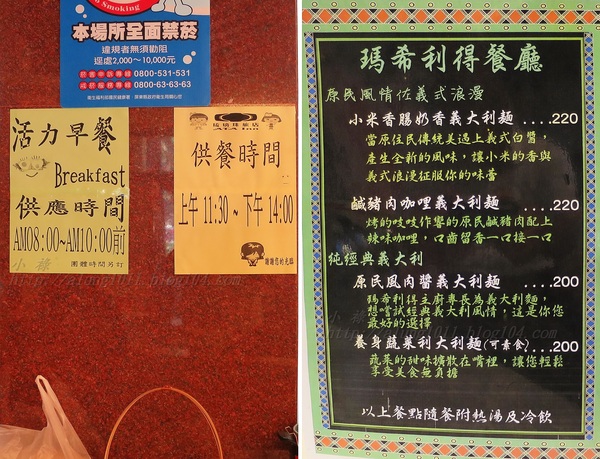 No Smoking
本場所全面禁菸
違規者無須勸阻
逕處2,000～10,000元
0800-531-531
0800-63-63-63
活力早餐
Breakfast
供應時間
AM08:00~AM10:00前
團體時間另訂
琉璃珠旅店
ATA Inn
供餐時間
上午 11:30 ~ 下午 14:00
謝謝您的光臨
瑪希利得餐廳
原民風情佐義式浪漫
小米香腸奶香義大利麵 ....220
當原住民傳統美遇上義式白醬，
產生全新的風味，讓小米的香與
義式浪漫征服你的味蕾
鹹豬肉咖哩義大利麵 ....220
烤的吱吱作響的原民鹹豬肉配上
辣味咖哩，口齒留香一口接一口
純經典義大利
原民風肉醬義大利麵 ....200
瑪希利得主廚專長為義大利麵，
想嚐試經典義大利風情，這是你您
最好的選擇
養身蔬菜利大利麵(可素食)...200
蔬菜的甜味擴散在嘴裡，讓您輕鬆
享受美食無負擔
以上餐點隨餐附熱湯及冷飲